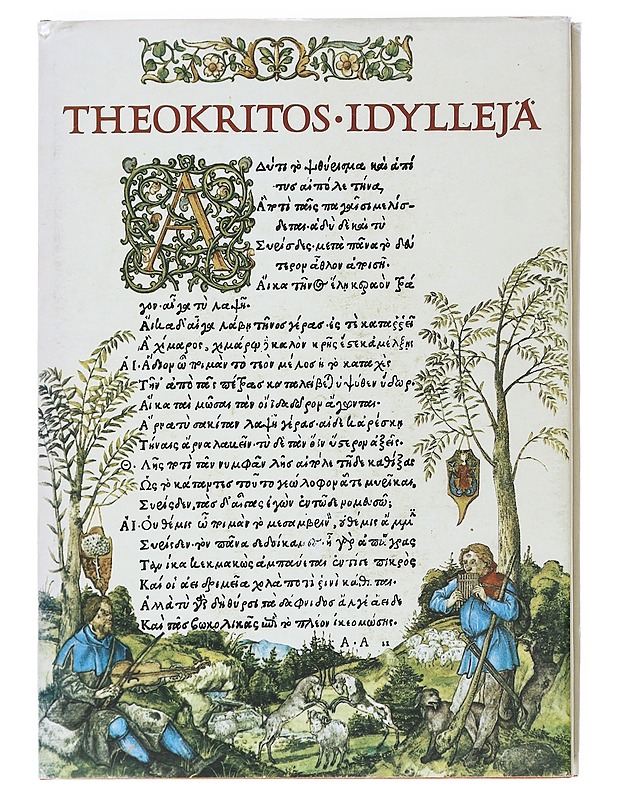 THEOKRITOS·IDYLLEJÄ
Α
Δύ τι τὸ ψιθύρισμα καὶ ἁ πί
τυς αἰπόλε τήνα,
Ἃ ποτὶ ταῖς παγαῖσι μελίσ-
δεται· ἁδὺ δὲ καὶ τὺ
Συρίσδες· μετὰ πᾶνα τὸ δεύ
τερον ἆθλον ἀποισῇ.
Αἴκα τῆνος ἕλῃ κεραὸν τρά
γον· αἶγα τὺ λαψῇ.
Αἴκα δ' αἶγα λάβῃ τῆνος γέρας· ἐς τὲ καταρρεῖ
Ἁ χίμαρος, χιμάρω καλὸν κρῆς ἔστε κ' ἀμέλξῃς
ΑΙ. Ἅδιον ὦ ποιμὰν τὸ τεὸν μέλος ἢ τὸ καταχὲς
Τῆν' ἀπὸ τᾶς πέτρας καταλείβεται ὑψόθεν ὕδωρ.
Αἴκα ταὶ μῶσαι τὰν οἴιδα δῶρον ἄγωνται·
Ἄρνα τὺ σακίταν λαψῇ γέρας· αἰ δέ κ' ἀρέσκῃ
Τήναις ἄρνα λαβεῖν· τὺ δὲ τὰν ὄϊν ὕστερον ἀξεῖς.
Θ. Λῇς ποτὶ τᾶν νυμφᾶν λῇς αἰπόλε τῇδε καθίξας
Ὡς τὸ κάταντες τοῦτο γεώλοφον ἅτε μυρῖκαι,
Συρίσδεν, τὰς δ' αἶγας ἐγὼν ἐν τῷδε νομευσῶ;
ΑΙ. Οὐ θέμις ὦ ποιμὰν τὸ μεσαμβρινὸν, οὐ θέμις ἄμμιν
Συρίσδεν· τὸν πᾶνα δεδοίκαμες· ἦ γὰρ ἀπ' ἄγρας
Τανίκα κεκμακὼς ἀμπαύεται· ἐντί γε πικρὸς
Καί οἱ ἀεὶ δριμεῖα χολὰ ποτὶ ῥινὶ κάθηται.
Ἀλλὰ τὺ γὰρ δὴ θύρσι τὰ δάφνιδος ἄλγε' ἀείδες
Καὶ τᾶς βωκολικᾶς ἐπὶ τὸ πλέον ἵκεο μώσης.
A·A ii